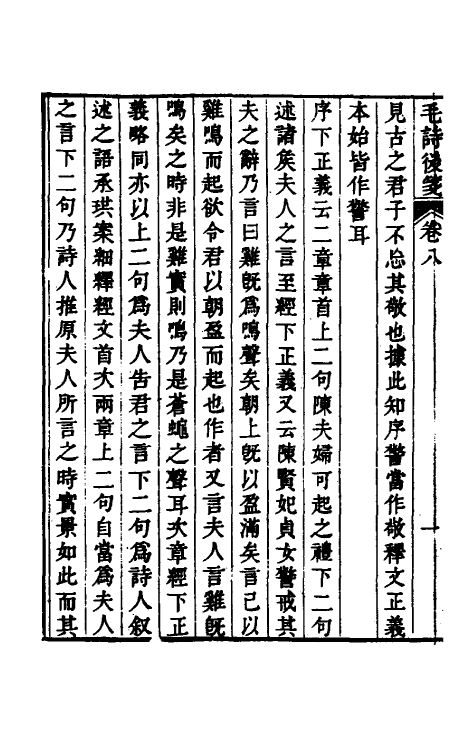 毛詩後箋 卷八 一
見古之君子不忘其敬也據此知序警當作敬釋文正義
本始皆作警耳
序下正義云二章章首上二句陳夫婦可起之禮下二句
述諸矦夫人之言至經下正義又云陳賢妃貞女警戒其
夫之辭乃言曰雞旣爲鳴聲矣朝上旣以盈滿矣言己以
雞鳴而起欲令君以朝盈而起也作者又言夫人言雞旣
鳴矣之時非是雞實則鳴乃是蒼蠅之聲耳次章經下正
義略同亦以上二句爲夫人告君之言下二句爲詩人叙
述之語承珙案細釋經文首次兩章上二句自當爲夫人
之言下二句乃詩人推原夫人所言之時實景如此而其